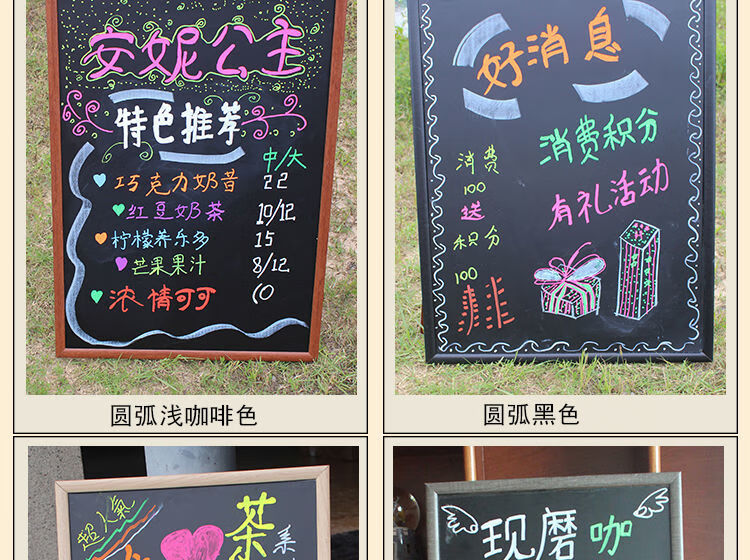 安妮公主
特色推荐
中/大
巧克力奶昔 22
红豆奶茶 10/12
柠檬养乐多 15
芒果果汁 8/12
浓情可可 10
圆弧浅咖啡色
好消息
消费积分
有礼活动
消费
100
送
积分
100
圆弧黑色
超人氣
茶
系
现磨咖